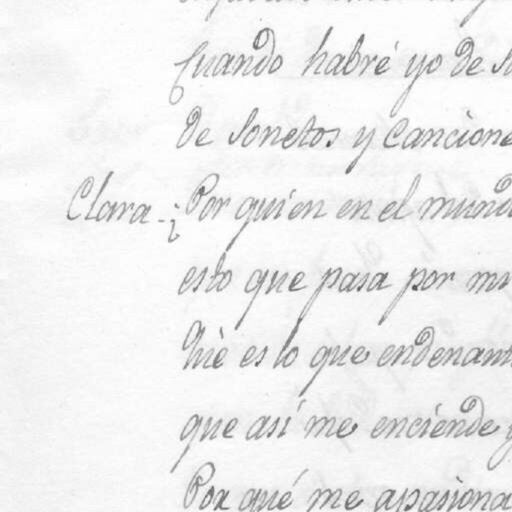 Cuando habré yo de
de Sonetos y Cancione
Clara - ¿Por quien en el mund
esto que pasa por mi
Qué es lo que endenant
que así me enciende y
Por qué me apasiona